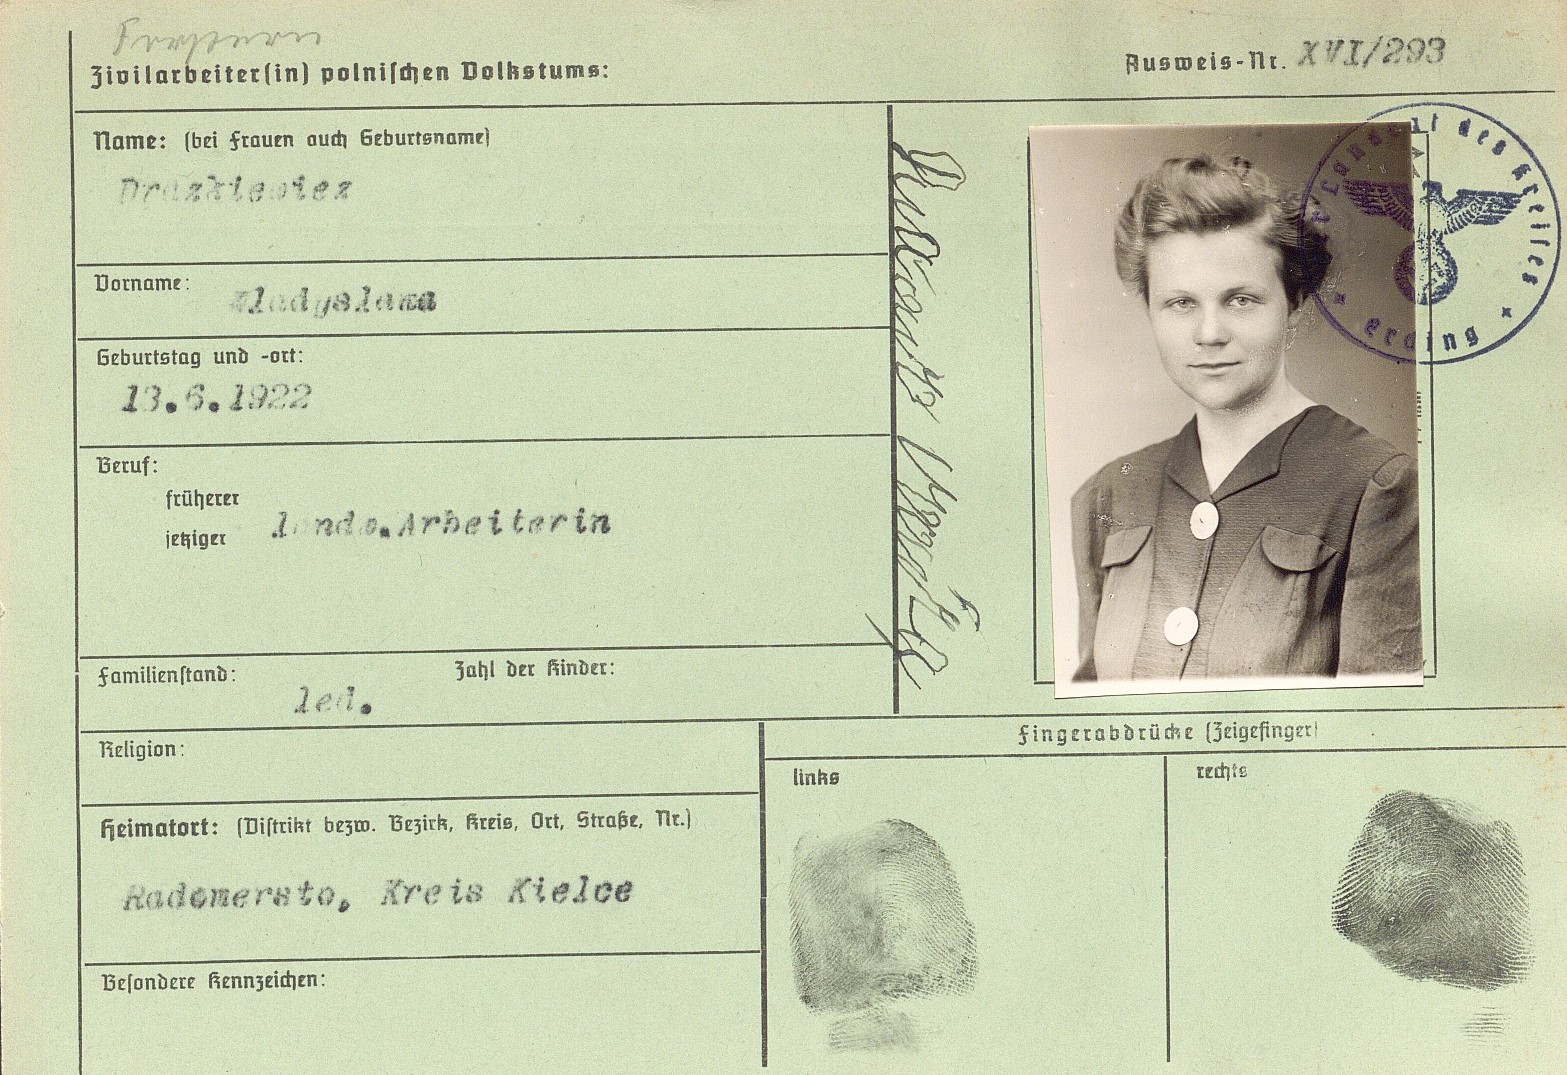 Zivilarbeiter(in) polnischen Volkstums:
Ausweis-Nr. XVI/293
Name: (bei Frauen auch Geburtsname)
Drazkiewicz
Vorname:
Wladyslawa
Geburtstag und -ort:
13.6.1922
Beruf:
früherer
jetziger
landw.Arbeiterin
Familienstand:
led.
Zahl der Kinder:
Religion:
Heimatort: (Distrikt bezw. Bezirk, Kreis, Ort, Straße, Nr.)
Radomersto, Kreis Kielce
Besondere Kennzeichen:
Der Landrat des Kreises
Erding
Fingerabdrücke (Zeigefinger)
links
rechts